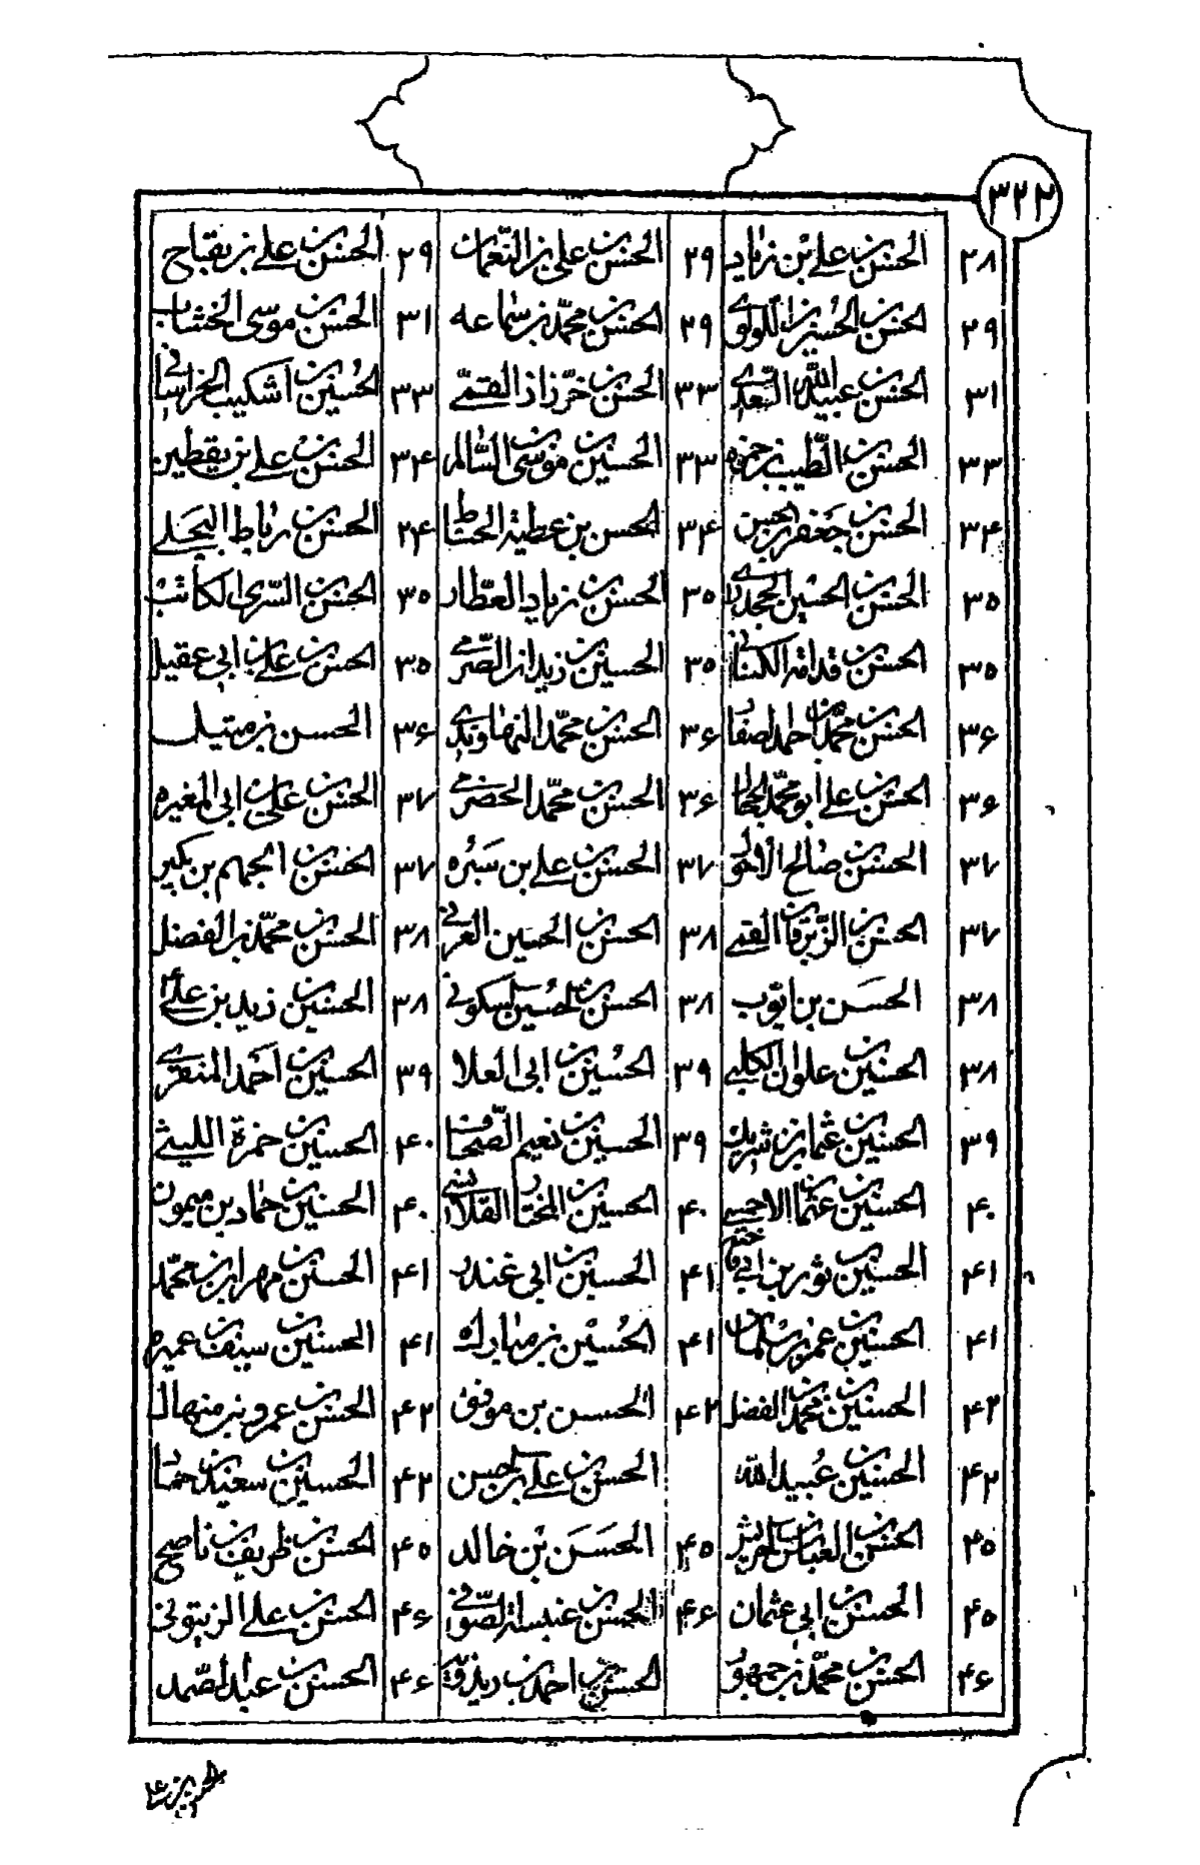 ٣٢٢
٢٨ الحسن بن علي بن زياد ٢٩ الحسن بن علي بن النعمان ٢٩ الحسن بن علي بن بقباح
٢٩ الحسن بن الحسين اللولوي ٢٩ الحسن بن محمد بن سماعه ٣١ الحسن بن موسى الخشاب
٣١ الحسن بن عبيد الله السعدي ٣٣ الحسن بن خرّزاذ القمّي ٣٣ الحسين بن اشكيب الخراساني
٣٣ الحسن بن الطيب بن حمزه ٣٣ الحسين بن موسى السالم ٣۴ الحسن بن علي بن يقطين
٣۴ الحسن بن جعفر بن الحسن ٣۴ الحسن بن عطية الحناط ٢۴ الحسن بن رباط البجلي
٣٥ الحسن بن الحسين الجحدري ٣٥ الحسن بن زياد العطار ٣٥ الحسن بن السري الكاتب
٣٥ الحسن بن قدامة الكناني ٣٥ الحسين بن زيدان الصرمي ٣٥ الحسن بن علي بن ابي عقيل
٣۶ الحسن بن محمد بن احمد الصفار ٣۶ الحسن بن محمد النهاوندي ٣۶ الحسن بن متيل
٣۶ الحسن بن علي ابو محمد الحجال ٣۶ الحسن بن محمد الحضرمي ٣٧ الحسن بن علي بن ابي المغيره
٣٧ الحسن بن صالح الاحول ٣٧ الحسن بن علي بن سبره ٣٧ الحسن بن الجهم بن بكير
٣٧ الحسن بن الزبرقان القمي ٣٨ الحسن بن الحسين العرني ٣٨ الحسن بن محمد بن الفضل
٣٨ الحسن بن ايوب ٣٨ الحسن بن الحسين السكوني ٣٨ الحسين بن زيد بن علي
٣٨ الحسين بن علوان الكلبي ٣٩ الحسين بن ابي العلا ٣٩ الحسين بن احمد المنقري
٣٩ الحسين بن عثمان بن شريك ٣٩ الحسين بن نعيم الصحاف ۴٠ الحسين بن حمزة الليثي
۴٠ الحسين بن عثمان الاحمسي ۴٠ الحسين بن المختار القلانسي ۴٠ الحسين بن حماد بن ميمون
۴١ الحسين بن ثور بن ابي فاخته ۴١ الحسين بن ابي غندر ۴١ الحسين بن مهران بن محمد
۴١ الحسين بن عمر بن سلمان ۴١ الحسين بن مبارك ۴١ الحسين بن سيف بن عميره
۴٢ الحسين بن محمد بن الفضل ۴٢ الحسن بن موفق ۴٢ الحسن بن عمرو بن منهال
۴٢ الحسين بن عبيد الله الحسن بن علي بن الحسن ۴٢ الحسين بن سعيد بن حماد
۴٥ الحسن بن العباس بن الحريش ۴٥ الحسن بن خالد ۴٥ الحسن بن ظريف بن ناصح
۴٥ الحسن بن ابي عثمان ۴۶ الحسن بن عنبسة الصوفي ۴۶ الحسن بن علي الزيتوني
۴۶ الحسن بن محمد بن جمهور الحسن بن احمد بن ريذويه ۴۶ الحسن بن عبد الصمد